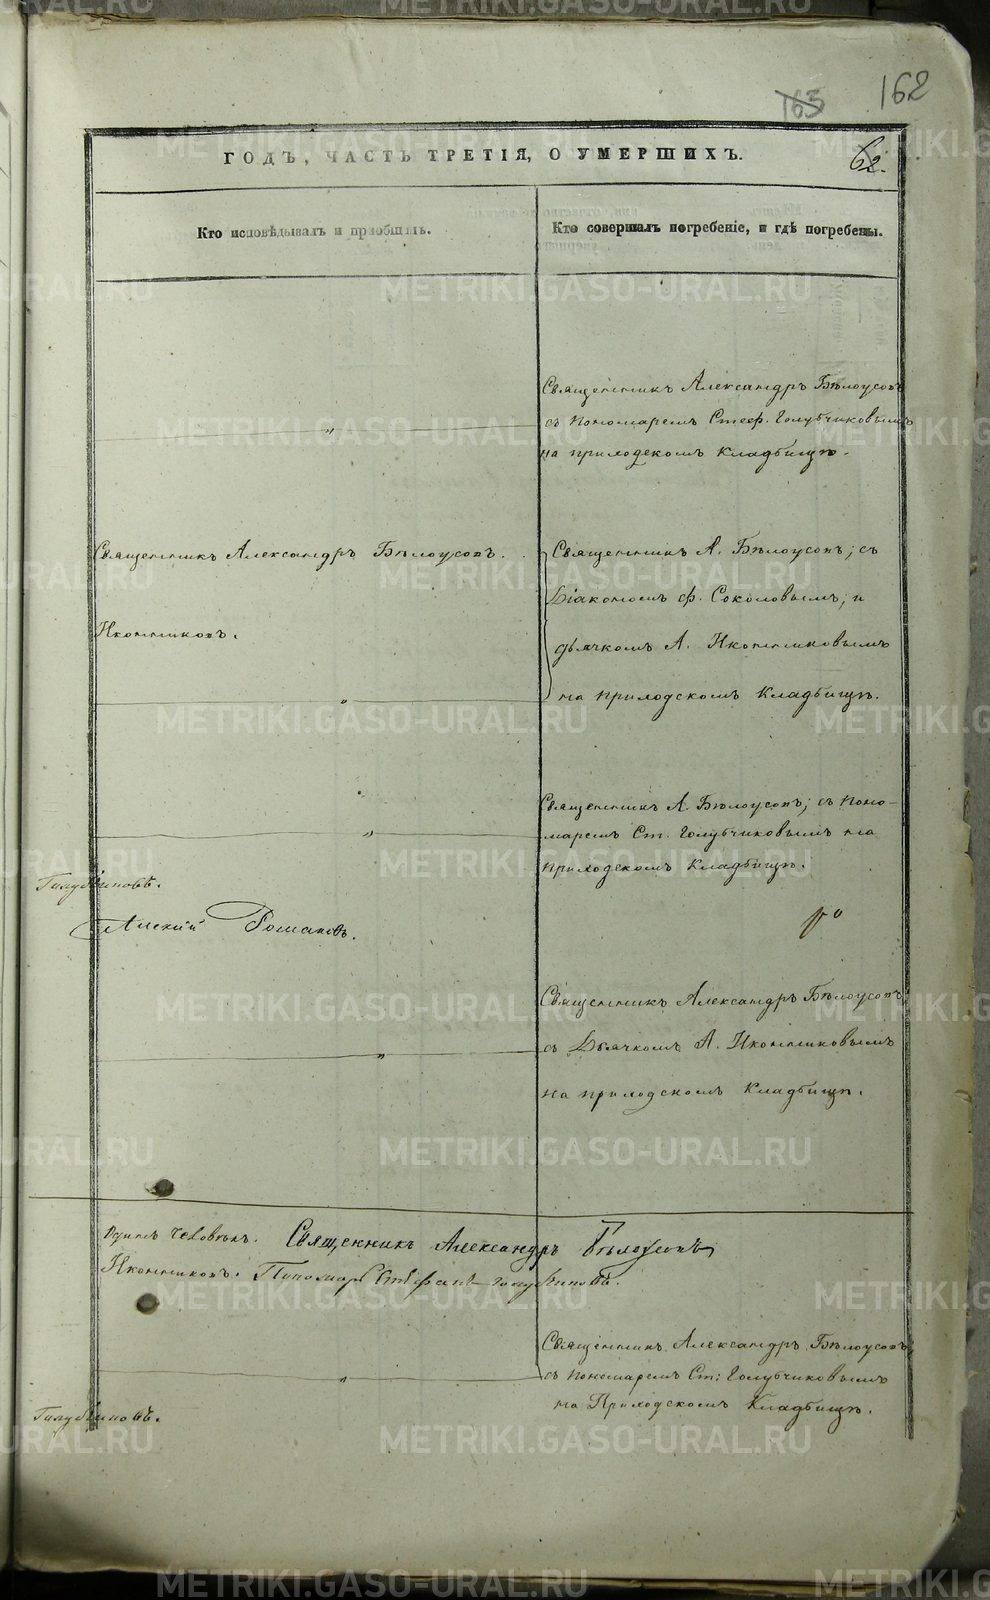 162
163
62.
ГОДЪ, ЧАСТЬ ТРЕТІЯ, О УМЕРШИХЪ.
Кто исповѣдывалъ и пріобщалъ.
Кто совершалъ погребеніе, и гдѣ погребены.
Священникъ Александръ Бѣлоусовъ
съ пономаремъ Стеф. Голубчиковымъ
на приходскомъ кладбищѣ.
Священникъ Александръ Бѣлоусовъ.
Священникъ А. Бѣлоусовъ; съ
Діакономъ Ф. Соколовымъ; и
Иконниковъ.
дьячкомъ А. Иконниковымъ
на приходскомъ кладбищѣ.
Священникъ А. Бѣлоусовъ; съ поно-
маремъ Ст. Голубчиковымъ на
приходскомъ кладбищѣ.
Голубчиковъ.
Романовъ.
Священникъ Александръ Бѣлоусовъ
съ Дьячкомъ А. Иконниковымъ
на приходскомъ кладбищѣ.
одинъ человѣкъ. Священникъ Александръ Бѣлоусовъ
Иконниковъ. Пономарь Стефанъ Голубчиковъ.
Священникъ Александръ Бѣлоусовъ
съ пономаремъ Ст: Голубчиковымъ
на Приходскомъ Кладбищѣ.
Голубчиковъ.
METRIKI.GASO-URAL.RU